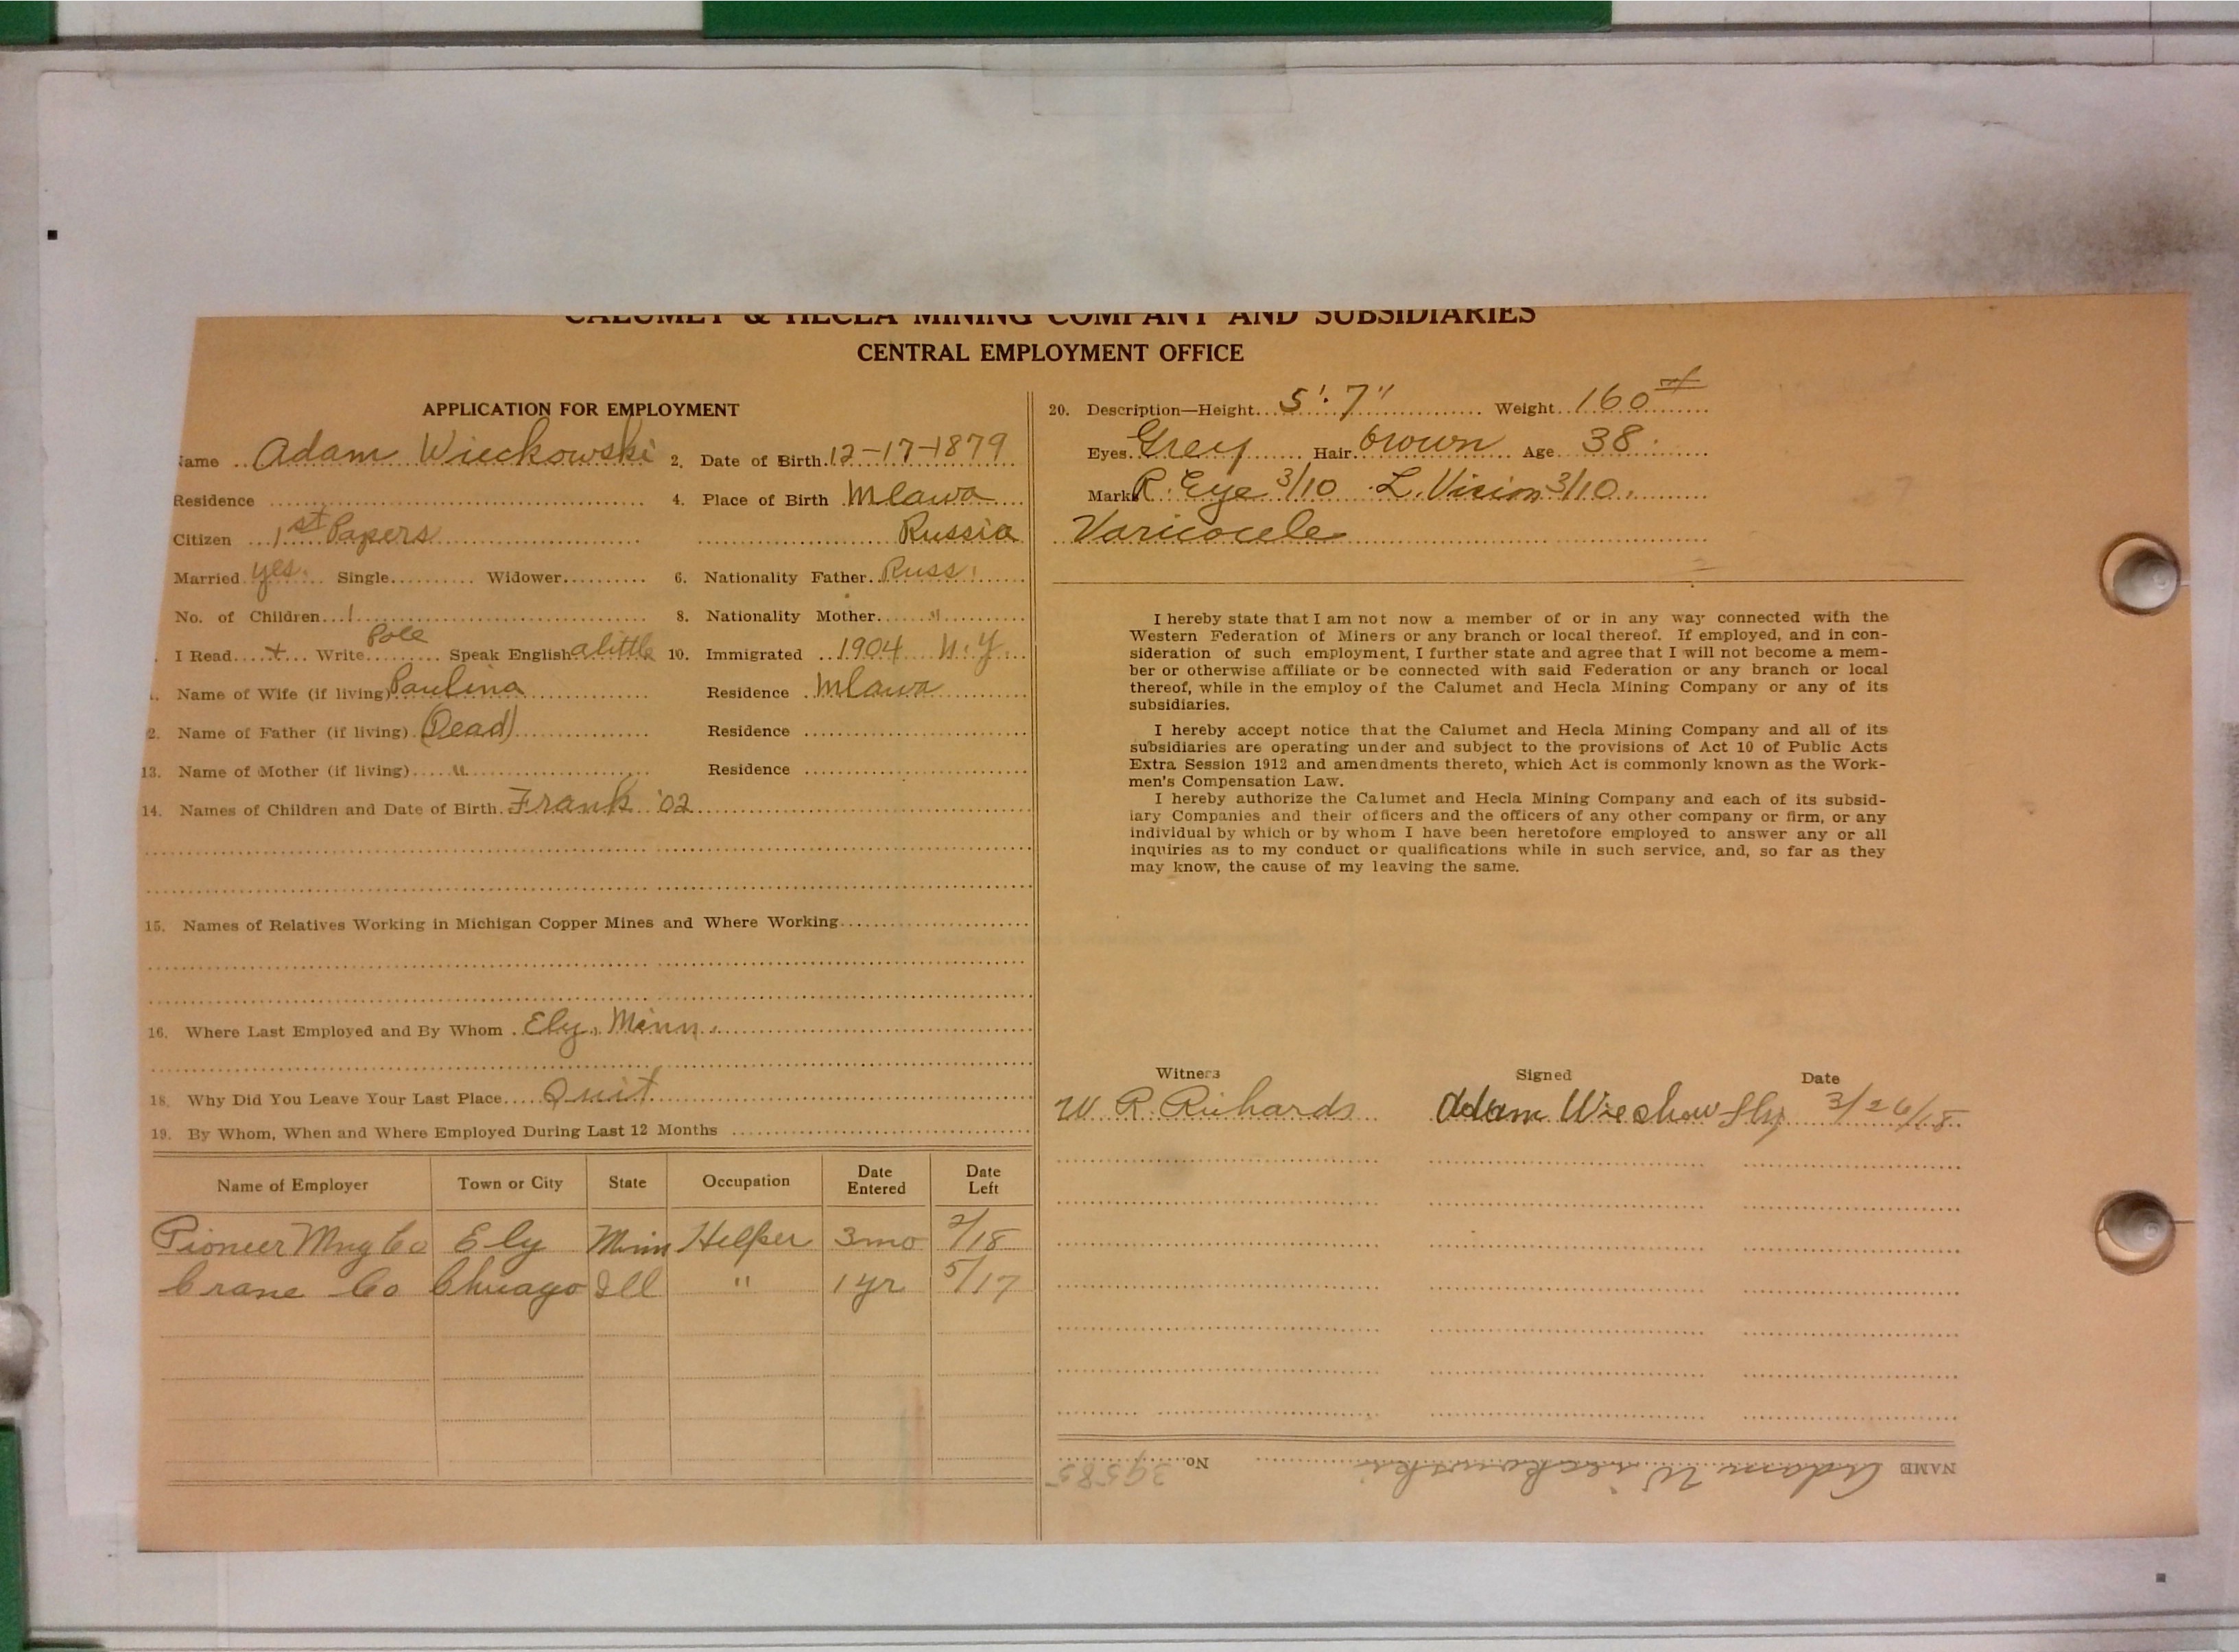 CALUMET & HECLA MINING COMPANY AND SUBSIDIARIES
CENTRAL EMPLOYMENT OFFICE
APPLICATION FOR EMPLOYMENT
Name Adam Wieckowski 2. Date of Birth 12-17-1879
Residence 4. Place of Birth Mlawa
Citizen 1st Papers Russia
Married yes. Single Widower 6. Nationality Father Russ.
No. of Children 1 8. Nationality Mother "
I Read + Write Pole Speak English a little 10. Immigrated 1904 N.Y.
Name of Wife (if living) Paulina Residence Mlawa
2. Name of Father (if living) (Dead) Residence
13. Name of Mother (if living) " Residence
14. Names of Children and Date of Birth. Frank '02
15. Names of Relatives Working in Michigan Copper Mines and Where Working
16. Where Last Employed and By Whom Ely, Minn.
18. Why Did You Leave Your Last Place Quit
19. By Whom, When and Where Employed During Last 12 Months
Name of Employer Town or City State Occupation Date Entered Date Left
Pioneer Mng Co Ely Minn Helper 3mo 2/18
Crane Co Chicago Ill " 1 yr 5/17
20. Description—Height 5'. 7" Weight 160 #
Eyes Grey Hair brown Age 38.
Mark R. Eye 3/10 L. Vision 3/10.
Varicocele
I hereby state that I am not now a member of or in any way connected with the
Western Federation of Miners or any branch or local thereof. If employed, and in con-
sideration of such employment, I further state and agree that I will not become a mem-
ber or otherwise affiliate or be connected with said Federation or any branch or local
thereof, while in the employ of the Calumet and Hecla Mining Company or any of its
subsidiaries.
I hereby accept notice that the Calumet and Hecla Mining Company and all of its
subsidiaries are operating under and subject to the provisions of Act 10 of Public Acts
Extra Session 1912 and amendments thereto, which Act is commonly known as the Work-
men's Compensation Law.
I hereby authorize the Calumet and Hecla Mining Company and each of its subsid-
iary Companies and their officers and the officers of any other company or firm, or any
individual by which or by whom I have been heretofore employed to answer any or all
inquiries as to my conduct or qualifications while in such service, and, so far as they
may know, the cause of my leaving the same.
Witness Signed Date
W. R. Richards Adam Wiechowsky 3/26/18
NAME Adam Wieckowski No. 39585